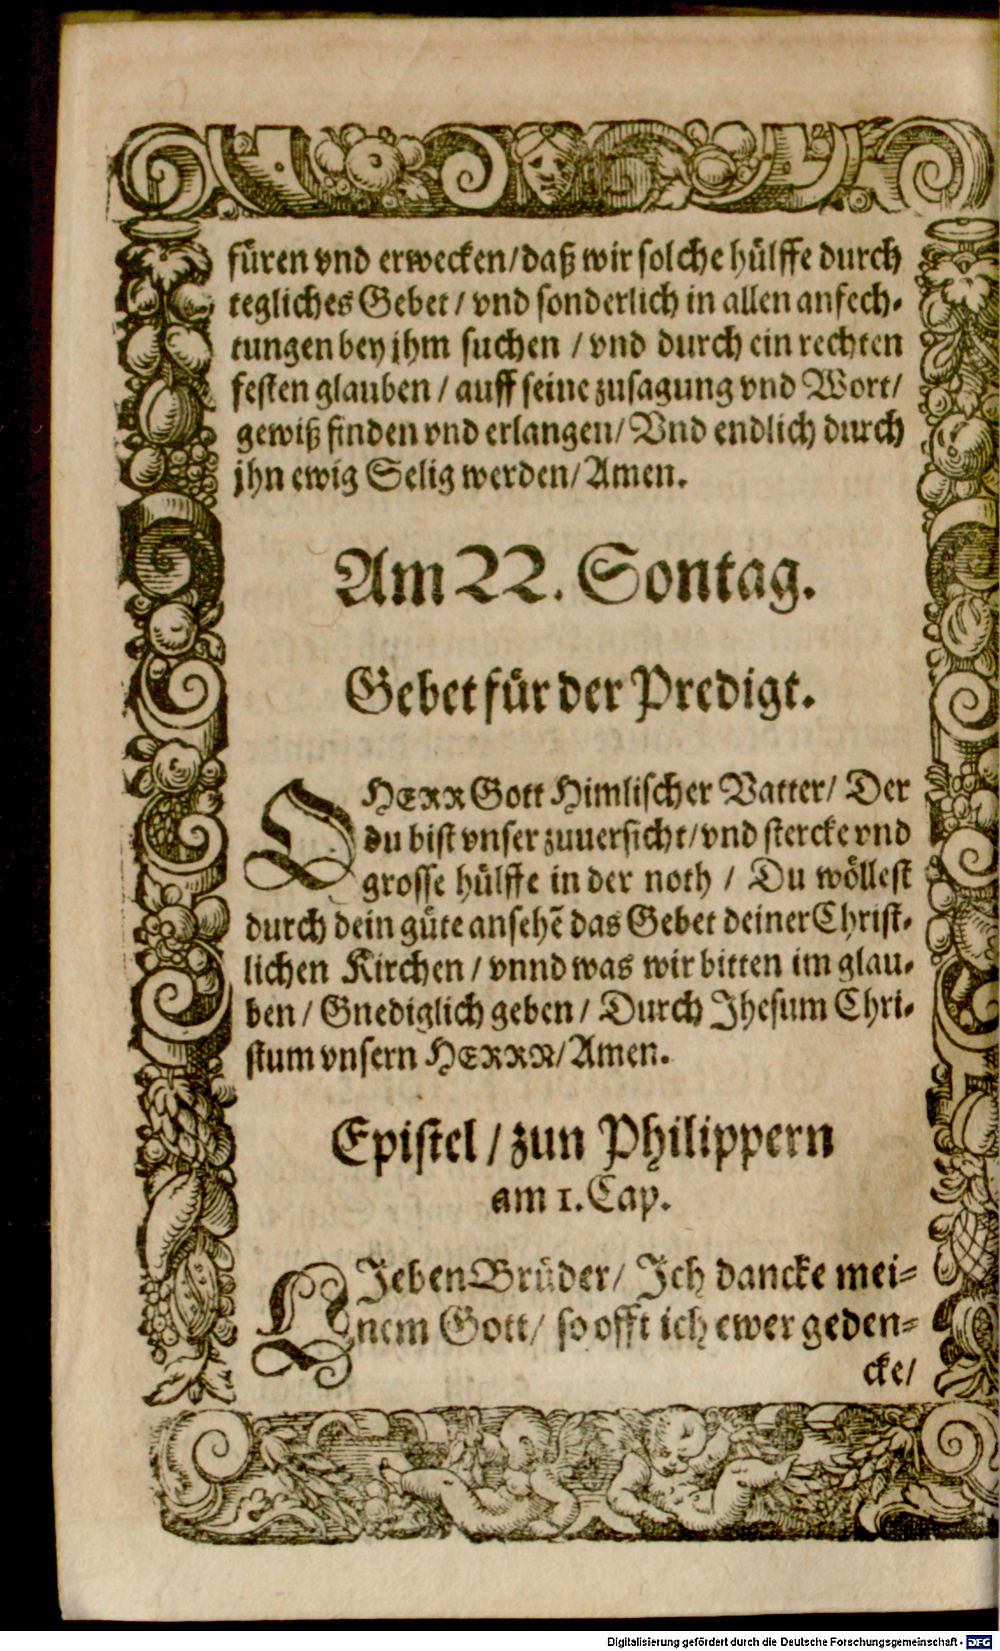 füren vnd erwecken/daß wir solche hülffe durch
tegliches Gebet / vnd sonderlich in allen anfech-
tungen bey jhm suchen / vnd durch ein rechten
festen glauben / auff seine zusagung vnd Wort/
gewiß finden vnd erlangen/ Vnd endlich durch
jhn ewig Selig werden/Amen.
Am 22. Sontag.
Gebet für der Predigt.
O HERR Gott Himlischer Vatter/ Der
du bist vnser zuuersicht/vnd stercke vnd
grosse hülffe in der noth / Du wöllest
durch dein güte ansehẽ das Gebet deiner Christ-
lichen Kirchen / vnnd was wir bitten im glau-
ben / Gnediglich geben / Durch Jhesum Chri-
stum vnsern HERRN/Amen.
Epistel / zun Philippern
am 1. Cap.
LJeben Brüder/ Jch dancke mei-
nem Gott/ so offt ich ewer geden-
cke/
Digitalisierung gefördert durch die Deutsche Forschungsgemeinschaft - DFG